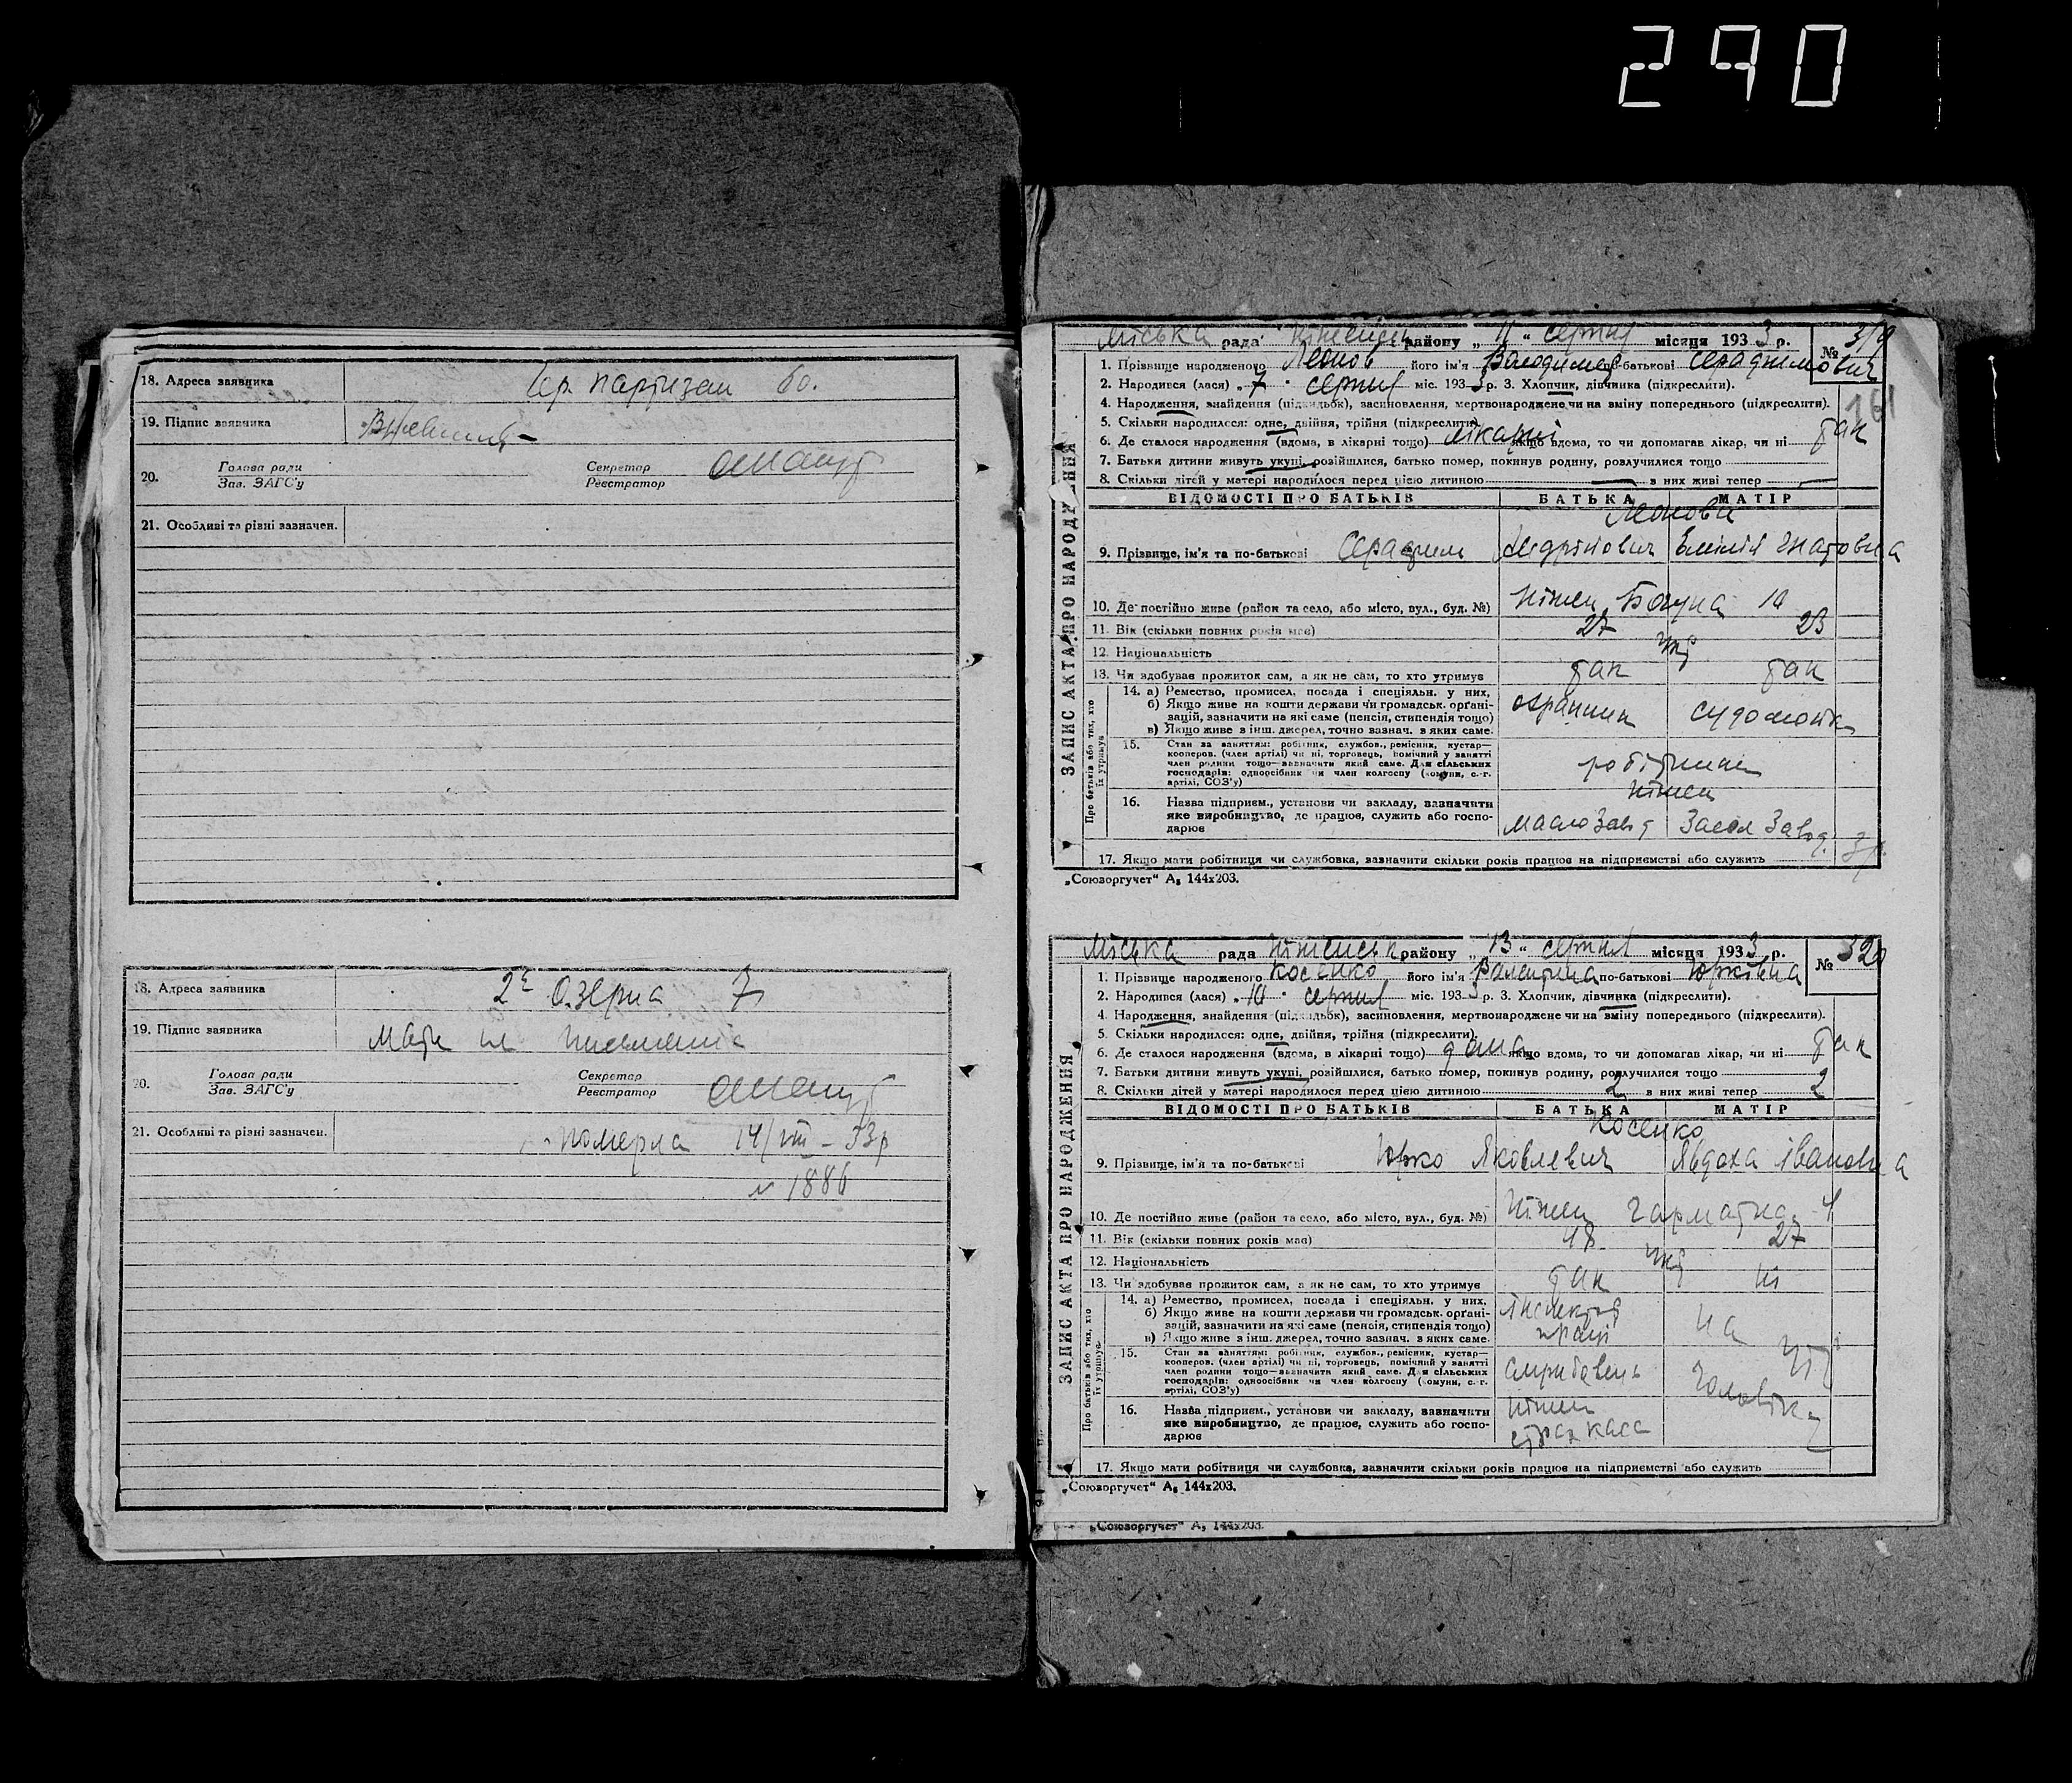 290
18. Адреса заявника Чер. партизан 60.
19. Підпис заявника
20. Голова ради Секретар
Зав. ЗАГС'у Реєстратор
21. Особливі та різні зазначен.
18. Адреса заявника 2г Озерна 7
19. Підпис заявника Мати не письменна
20. Голова ради Секретар
Зав. ЗАГС'у Реєстратор
21. Особливі та різні зазначен. померла 14/VIII - 33р
№ 1886
ЗАПИС АКТА ПРО НАРОДЖЕННЯ
Міська рада Ніженськ району „ 11 “ серпня місяця 193 3 р. № 319
1. Прізвище народженого Леонов його ім'я Володимир по-батькові Серафимович
2. Народився (лася) „ 7 “ серпня міс. 193 3 р. 3. Хлопчик, дівчинка (підкреслити).
161
4. Народження, знайдення (підкидьок), засиновлення, мертвонароджене чи на зміну попереднього (підкреслити).
5. Скільки народилося: одне, двійня, трійня (підкреслити).
6. Де сталося народження (вдома, в лікарні тощо) лікарні якщо вдома, то чи допомагав лікар, чи ні так
7. Батьки дитини живуть укупі, розійшлися, батько помер, покинув родину, розлучилися тощо
8. Скільки дітей у матері народилося перед цією дитиною — з них живі тепер —
ВІДОМОСТІ ПРО БАТЬКІВ БАТЬКА МАТІР
Леонови
9. Прізвище, ім'я та по-батькові Серафим Андріянович Емілія Гнатовна
10. Де постійно живе (район та село, або місто, вул., буд. №) Ніжен Богуна 14
11. Вік (скільки повних років має) 27 23
12. Національність укр
13. Чи здобуває прожиток сам, а як не сам, то хто утримує так так
Про батьків або тих, хто їх утримує
14. а) Ремество, промисел, посада і спеціяльн. у них,
б) Якщо живе на кошти держави чи громадськ. орґані-
зацій, зазначити на які саме (пенсія, стипендія тощо)
в) Якщо живе з інш. джерел, точно зазнач. з яких саме.
охранник судомойк
15. Стан за заняттям: робітник, службов., ремісник, кустар—
кооперов. (член артілі) чи ні, торговець, помічний у занятті
член родини тощо—зазначити який саме. Для сільських
господарів: одноосібник чи член колгоспу (комуни, с.-г.
артілі, СОЗ'у)
робітники
16. Назва підприєм., установи чи закладу, зазначити
яке виробництво, де працює, служить або госпо-
дарює
Ніжен
Маслозавод Засол Завод.
17. Якщо мати робітниця чи службовка, зазначити скільки років працює на підприємстві або служить 3р.
„Союзоргучет“ А₅ 144х203.
ЗАПИС АКТА ПРО НАРОДЖЕННЯ
Міська рада Ніженськ району „ 13 “ серпня місяця 193 3 р. № 320
1. Прізвище народженого Косенко його ім'я Валентина по-батькові Юрківна
2. Народився (лася) „ 10 “ серпня міс. 193 3 р. 3. Хлопчик, дівчинка (підкреслити).
4. Народження, знайдення (підкидьок), засиновлення, мертвонароджене чи на зміну попереднього (підкреслити).
5. Скільки народилося: одне, двійня, трійня (підкреслити).
6. Де сталося народження (вдома, в лікарні тощо) дома якщо вдома, то чи допомагав лікар, чи ні так
7. Батьки дитини живуть укупі, розійшлися, батько помер, покинув родину, розлучилися тощо
8. Скільки дітей у матері народилося перед цією дитиною 2 з них живі тепер 2
ВІДОМОСТІ ПРО БАТЬКІВ БАТЬКА МАТІР
Косенко
9. Прізвище, ім'я та по-батькові Юрко Яковлевич Явдоха Івановна
10. Де постійно живе (район та село, або місто, вул., буд. №) Ніжен Гарматна 4
11. Вік (скільки повних років має) 48 27
12. Національність укр
13. Чи здобуває прожиток сам, а як не сам, то хто утримує так ні
Про батьків або тих, хто їх утримує
14. а) Ремество, промисел, посада і спеціяльн. у них,
б) Якщо живе на кошти держави чи громадськ. орґані-
зацій, зазначити на які саме (пенсія, стипендія тощо)
в) Якщо живе з інш. джерел, точно зазнач. з яких саме.
інспектор праці на
15. Стан за заняттям: робітник, службов., ремісник, кустар—
кооперов. (член артілі) чи ні, торговець, помічний у занятті
член родини тощо—зазначити який саме. Для сільських
господарів: одноосібник чи член колгоспу (комуни, с.-г.
артілі, СОЗ'у)
службовець
16. Назва підприєм., установи чи закладу, зазначити
яке виробництво, де працює, служить або госпо-
дарює
Ніжен
страх каса
17. Якщо мати робітниця чи службовка, зазначити скільки років працює на підприємстві або служить
„Союзоргучет“ А₅ 144х203.
„Союзоргучет“ А₅ 144х203.